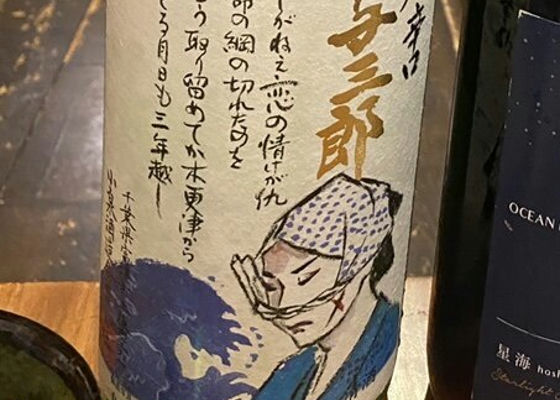 辛口
与三郎
しがねえ恋の情けが仇
命の綱の切れたのを
う取り留めてか木更津から
る月日も三年越し
千葉県富
小泉酒造
清酒
OCEAN
星海 hosh
Starlight